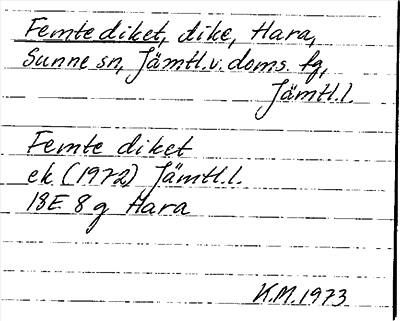 Femte diket, dike, Hara,
Sunne sn, Jämtl.v. doms. fg,
Jämtl.l.
Femte diket
ek. (1972) Jämtl.l.
18E 8g Hara
K.M. 1973